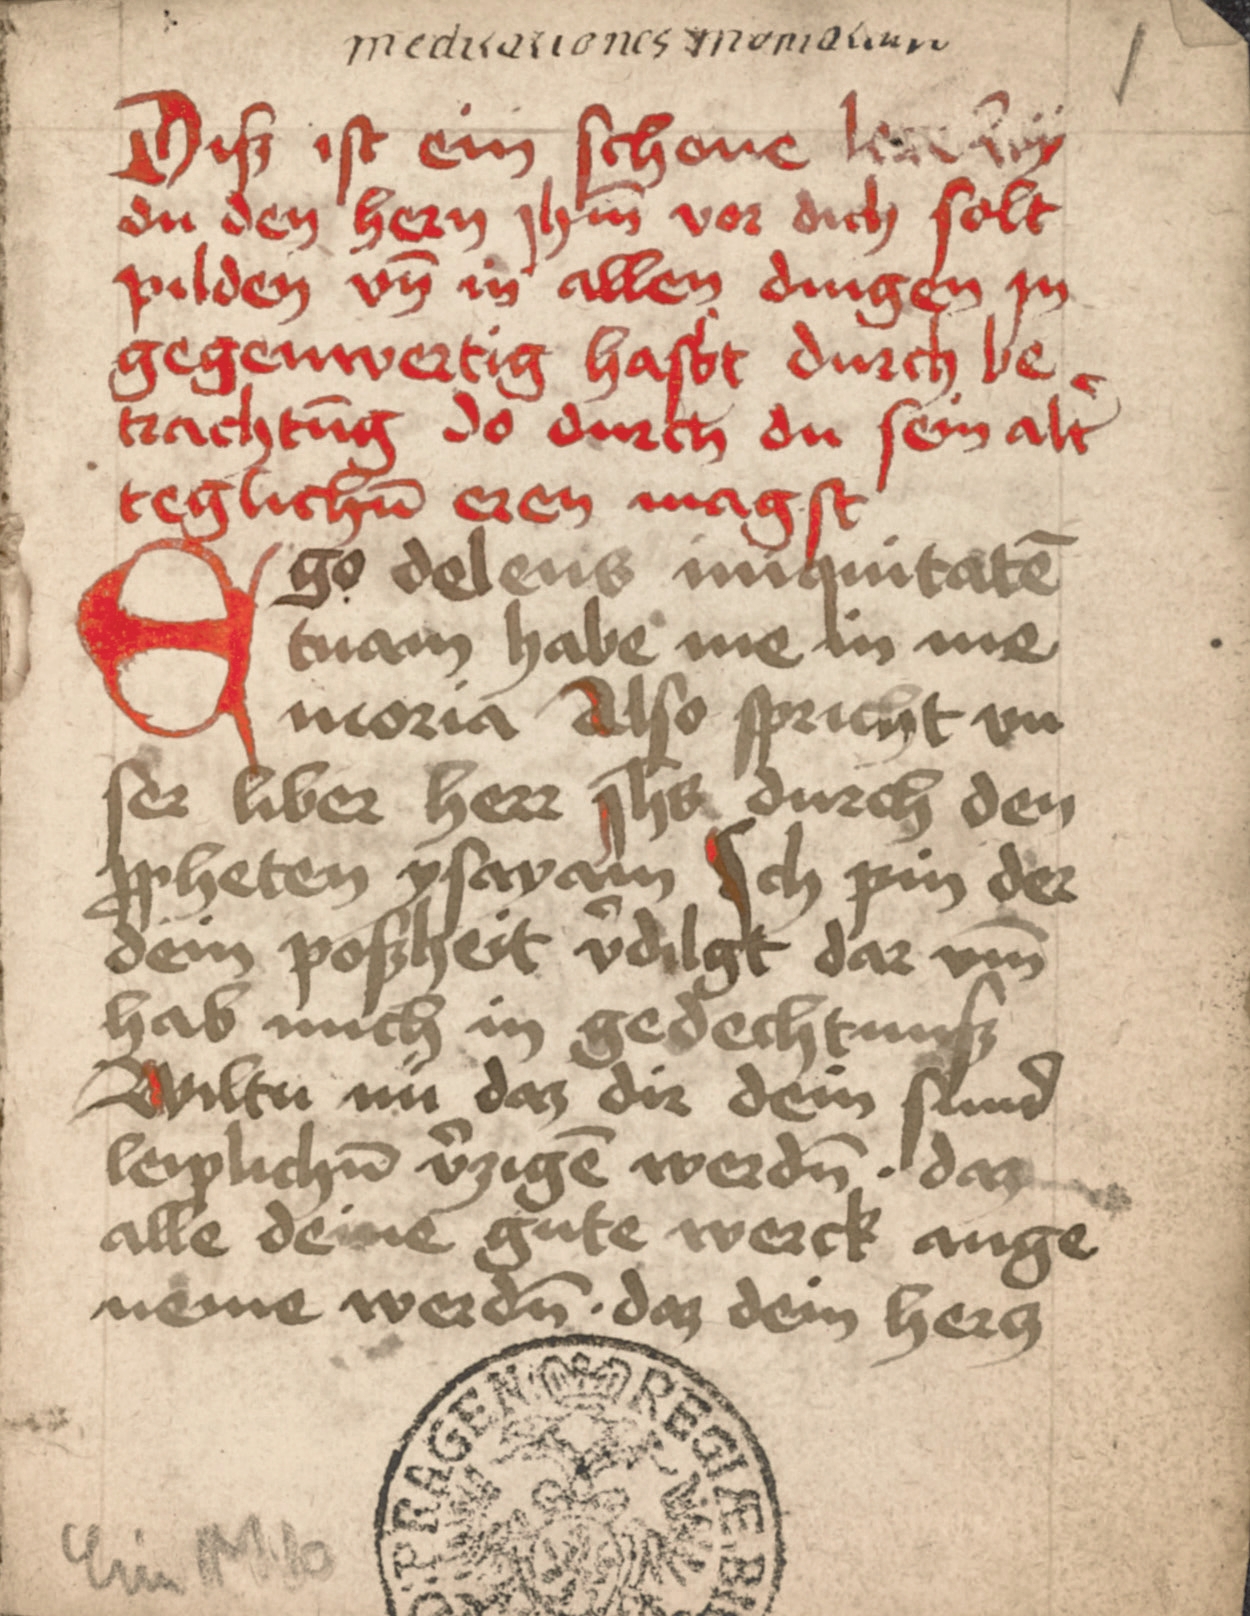 meditationes
1
Diß ist ein schone
du den hern Jhm̄ vor dich solt
pilden vn̄ in allen dingen in
gegenwertig hasbt durch be
trachtūg do durch du sein alt̓
teglichn̄ eren magst
Ego delens iniquitatē
tuam habe me in me
moria Also spricht vn
ser liber herr Jhs durch den
ꝓpheten ysayam Ich pin der
dein poßheit v̓dilgt dar vm̄
hab mich in gedechtnuß
Wiltu nu daz dir dein sund
leiplichn̄ v̓zigē werdn̄ . daz
alle deine gute werck ange
neme werdn̄ . daz dein hercz
PRAGEN REGIÆ BI